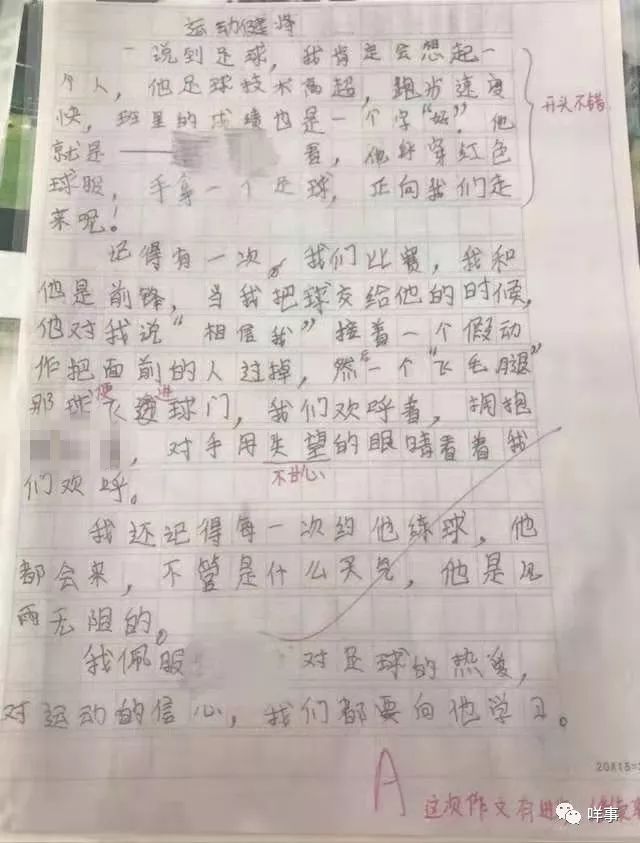 运动健将
一说到足球，我肯定会想起一
个人，他足球技术高超，跑步速度
快，班里的成绩也是一个字“好”。他
就是——看，他身穿红色
球服，手拿一个足球，正向我们走
来呢！
开头不错
记得有一次，我们比赛，我和
他是前锋，当我把球交给他的时候，
他对我说“相信我”接着一个假动
作把面前的人过掉，然后一个“飞毛腿”
那球便飞进球门，我们欢呼着，拥抱
，对手用失望的眼睛看着我
不甘心
们欢呼。
我还记得每一次约他练球，他
都会来，不管是什么天气，他是风
雨无阻的。
我佩服 对足球的热爱，
对运动的信心，我们都要向他学习。
20X15=
A
这次作文有进
咩事